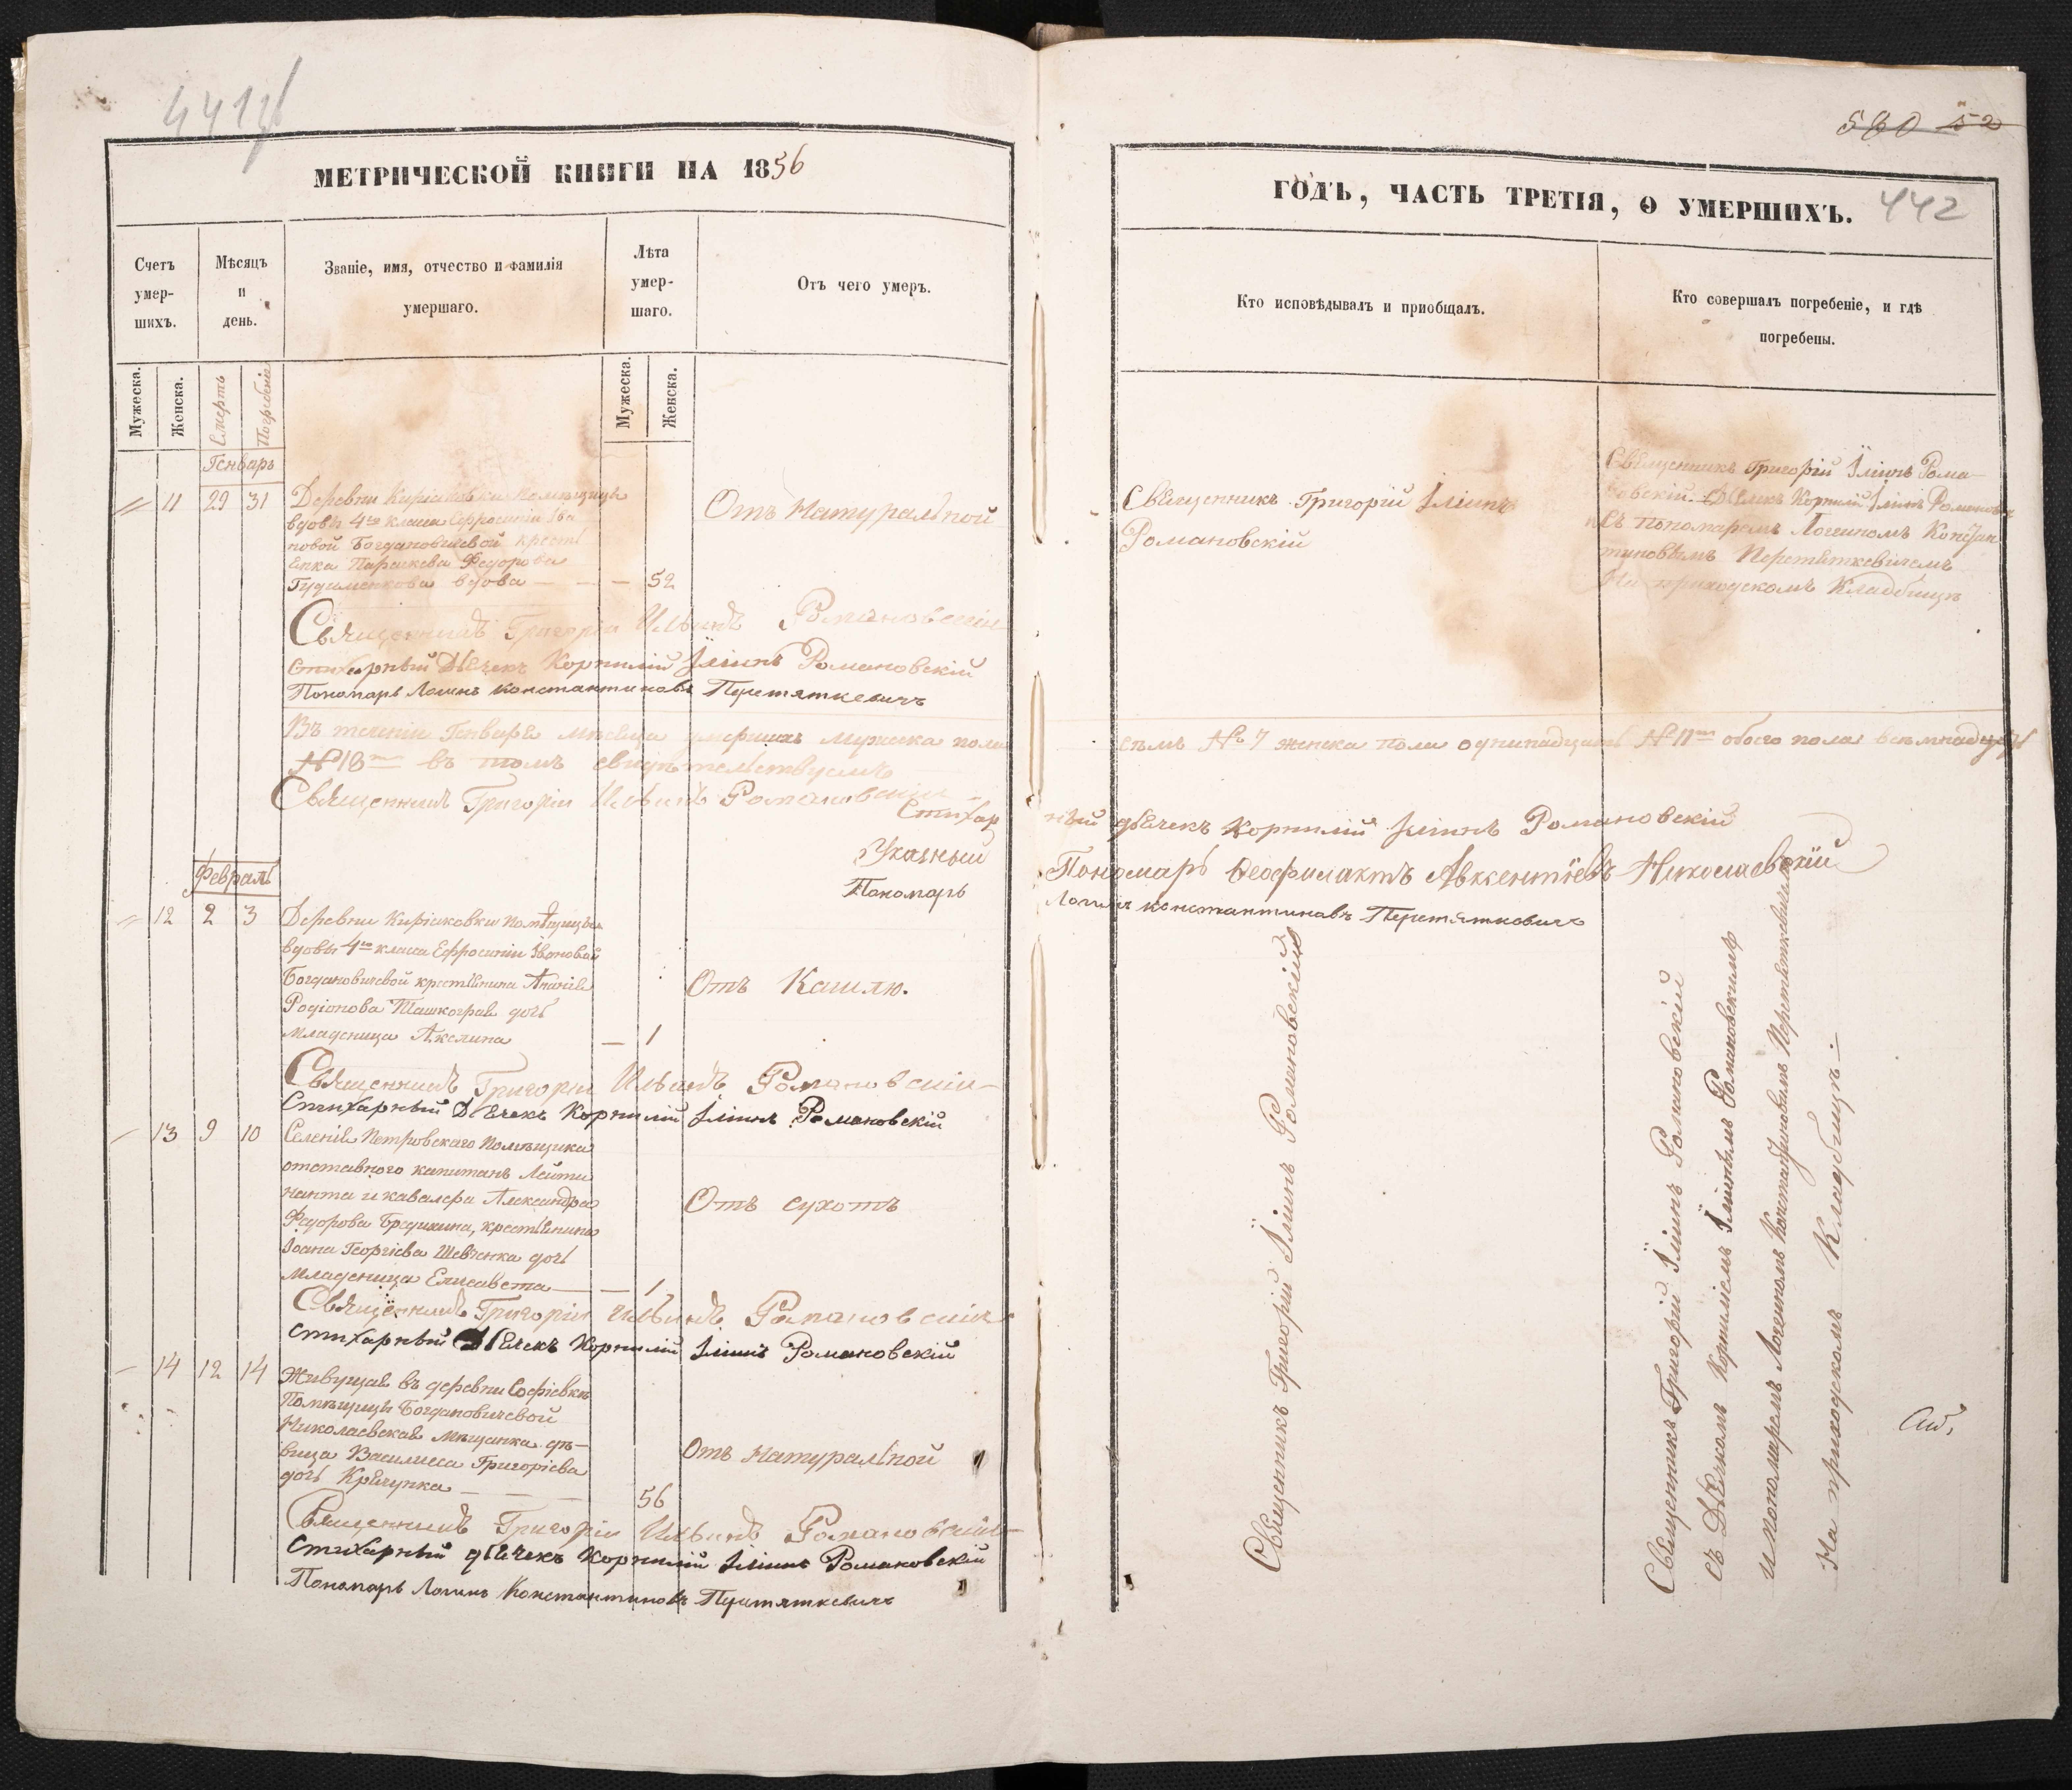 441
580 52
МЕТРИЧЕСКОЙ КНИГИ НА 1856
Счетъ умер-шихъ.
Мѣсяцъ и день.
Званіе, имя, отчество и фамилія умершаго.
Лѣта умер-шаго.
Отъ чего умеръ.
Мужеска.
Женска.
Смерть
Погребеніе
Мужеска.
Женска.
Генварь
11 29 31 Деревни Киріаковки помѣщицы
вдовы 4го класа Ефросиніи Ива
новой Богдановичевой кресть
янка Параскева Федорова
вдова — — — 52
Отъ Натуральной
Священникъ Григорій Ильинъ Романовскій
Стихарный Дьячекъ Корнилій Іліинъ Романовскій
Пономарь Логинъ Константиновъ Перетяткевичъ
Въ теченіи Генваря мѣсяца умершихъ мужеска пола
№ 18 въ томъ свидѣтельствуемъ
Священникъ Григорій Ильинъ Романовскій
Стихар
Указный
Пономарь
Февраль
12 2 3 Деревни Киріаковки помѣщицы
вдовы 4го класа Ефросиніи Ивановой
Богдановичевой крестьянина Ананія
Родіонова дочь
младеница Акелина — 1
Отъ Кашлю.
Священникъ Григорій Ильинъ Романовскій
Стихарный Дьячекъ Корнилій Іліинъ Романовскій
13 9 10 Селенія Петровскаго помѣщика
отставного капитанъ Лейти
нанта и кавалера Александра
Федорова крестьянина
Іоана Георгіева Шевченка дочь
младеница Елисавета — 1
Отъ сухотъ
Священникъ Григорій Ильинъ Романовскій
Стихарный Дьячекъ Корнилій Іліинъ Романовскій
14 12 14 Живущая въ деревни Софіевкѣ
Помѣщицы Богдановичевой
Николаевская мѣщанка дѣ-
вица Василиса Григоріева
дочь — — — 56
Отъ Натуральной
Священникъ Григорій Ильинъ Романовскій
Стихарный дьячекъ Корнилій Іліинъ Романовскій
Пономарь Логинъ Константиновъ Перетяткевичъ
ГОДЪ, ЧАСТЬ ТРЕТІЯ, О УМЕРШИХЪ. 442
Кто исповѣдывалъ и пріобщалъ.
Кто совершалъ погребеніе, и гдѣ погребены.
Священникъ Григорій Іліинъ
Романовскій
Священникъ Григорій Іліинъ Рома-
новскій Дьячекъ Корнилій Іліинъ Романовск
съ пономаремъ Логиномъ Констан
тиновымъ Перетяткевичемъ
На приходскомъ Кладбищѣ
семь № 7 женска пола одинадцать № 11 обоего пола восемнадцать
ный дьячекъ Корнилій Іліинъ Романовскій
Пономарь Феофилактъ Авксентіевъ Николаевскій
Логинъ константиновъ Перетяткевичъ
Священникъ Григорій Іліинъ Романовскій
Священникъ Григорій Іліинъ Романовскій
съ Дьячкомъ Корниліемъ Іліинымъ Романовскимъ
и пономаремъ Логиномъ Константиновымъ Перетяткевичемъ
На приходскомъ Кладбищѣ.